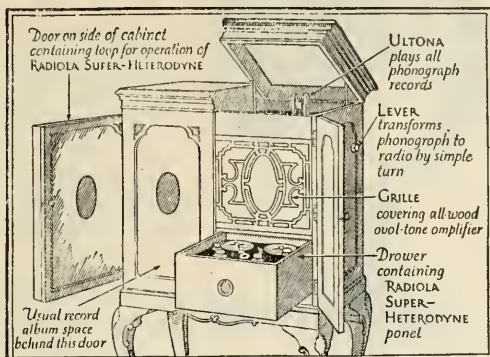 Door on side of cabinet
containing loop for operation of
RADIOLA SUPER-HETERODYNE
ULTONA
plays all
phonograph
records
LEVER
transforms
phonograph to
radio by simple
turn
GRILLE
covering all-wood
oval-tone amplifier
Drawer
containing
RADIOLA
SUPER-
HETERODYNE
panel
Usual record
album space
behind this door